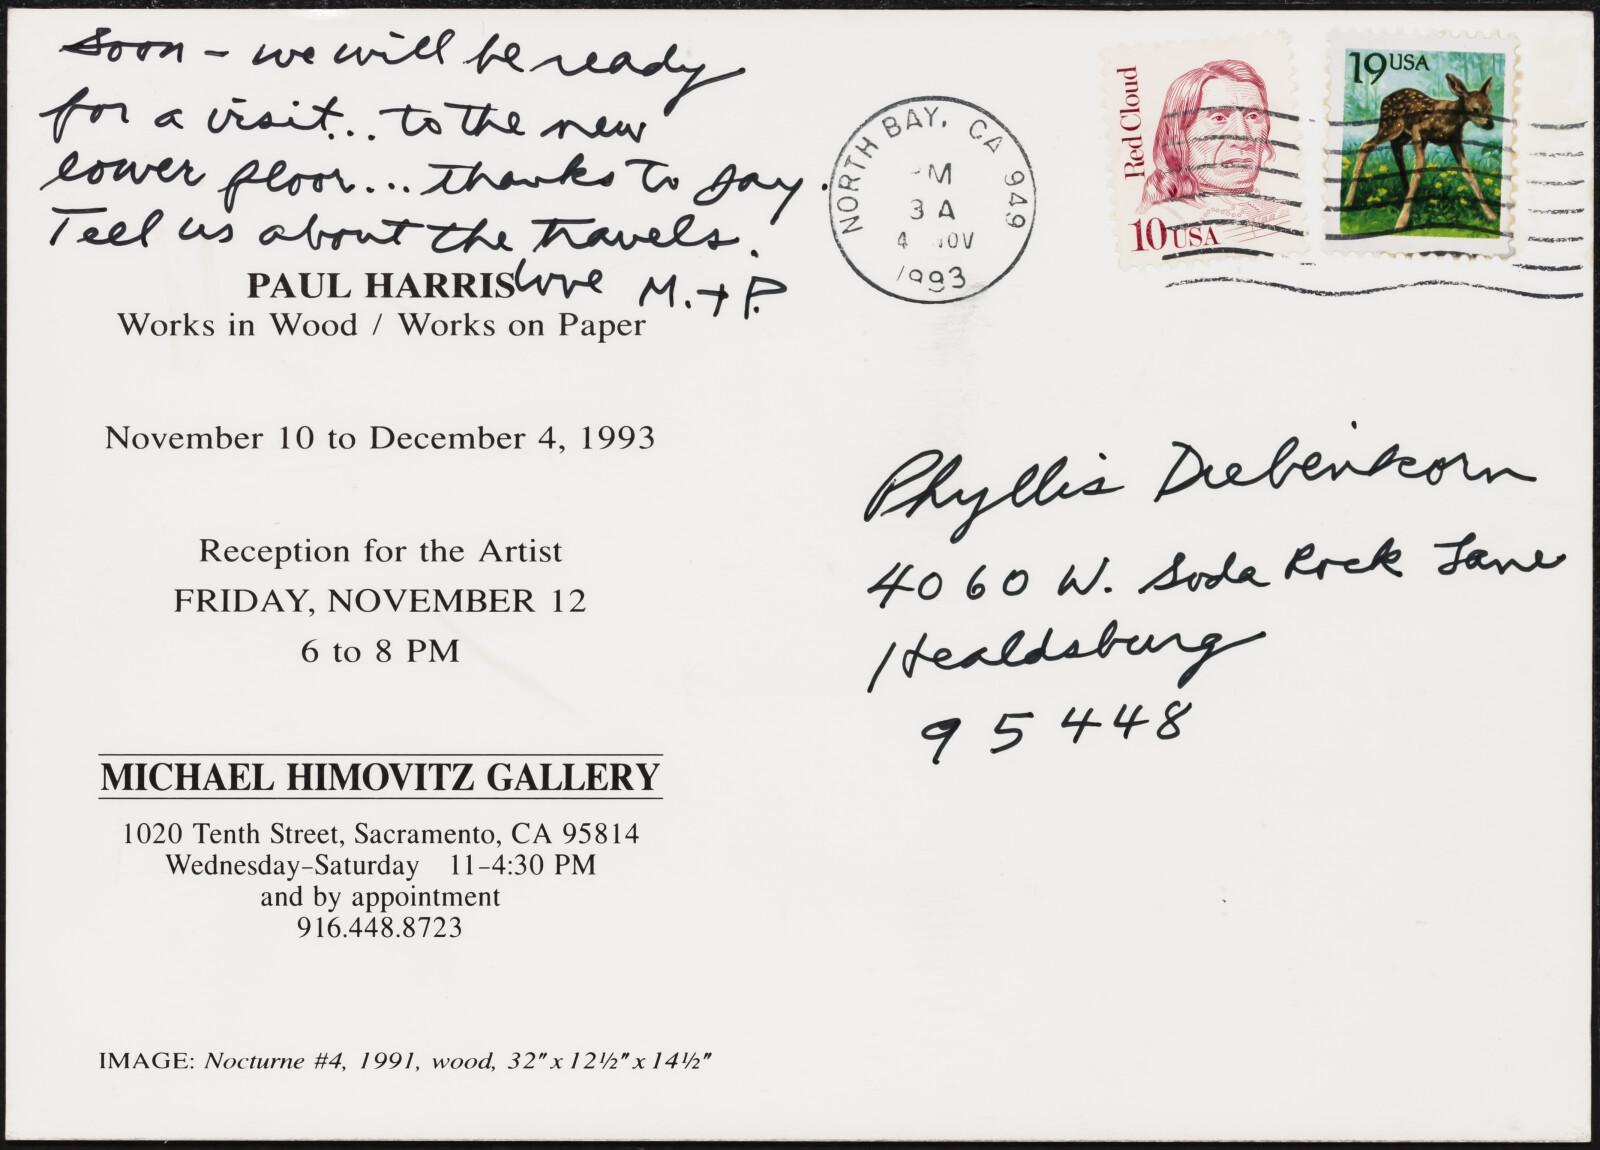 Soon – we will be ready
for a visit... to the new
lower floor... thanks to say.
Tell us about the travels.
love M. + P.
PAUL HARRIS
Works in Wood / Works on Paper
November 10 to December 4, 1993
Reception for the Artist
FRIDAY, NOVEMBER 12
6 to 8 PM
MICHAEL HIMOVITZ GALLERY
1020 Tenth Street, Sacramento, CA 95814
Wednesday–Saturday 11–4:30 PM
and by appointment
916.448.8723
IMAGE: Nocturne #4, 1991, wood, 32" x 12½" x 14½"
NORTH BAY, CA 949
3 A
4
1993
Red Cloud
10 USA
19 USA
Phyllis Diebenkorn
4060 W. Soda Rock Lane
Healdsburg
95448